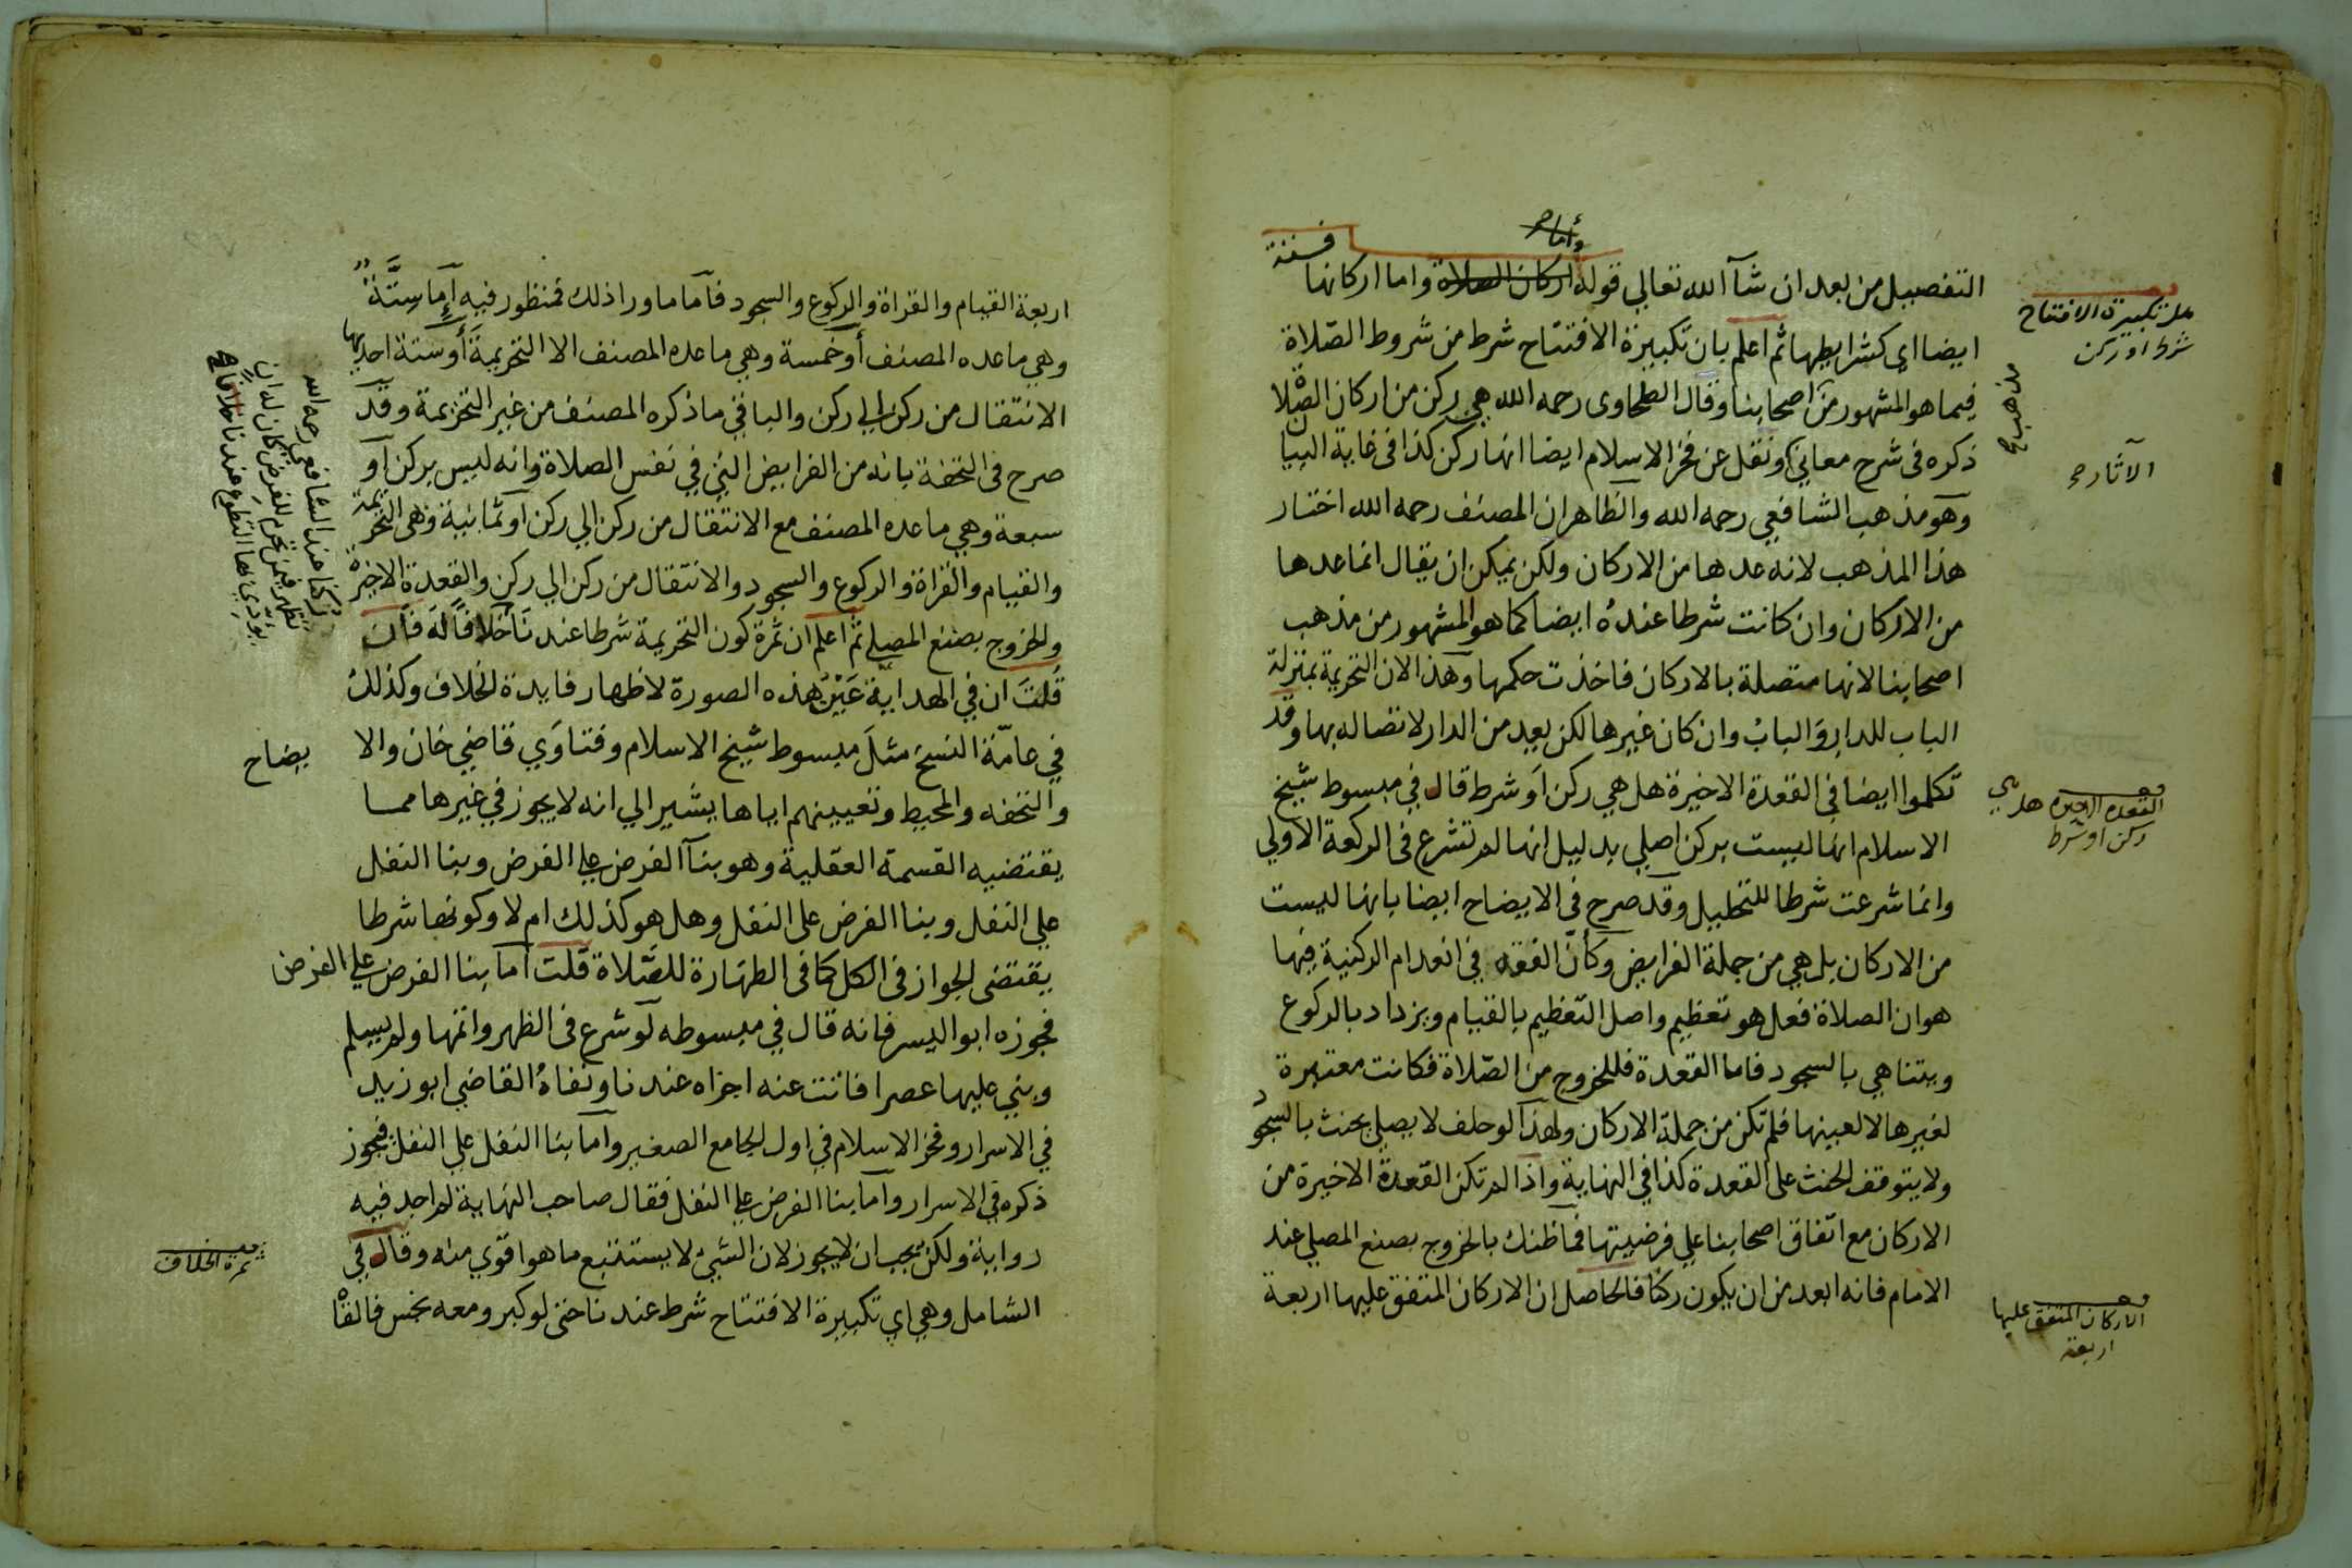 التفصيل من بعد ان شآ الله تعالي قوله اركان الصلاة واما اركانها فستة
ايضا اي كشرايطها ثم اعلم بان تكبيرة الافتتاح شرط من شروط الصّلاة
فيما هو المشهور من اصحابنا وقال الطحاوى رحمه الله هي ركن من اركان الصّلاة
ذكره فى شرح معاني ونقل عن فخر الاسلام ايضا انها ركن كذا فى غاية البيان
وهو مذهب الشافعي رحمه الله والظاهر ان المصنف رحمه الله اختار
هذا المذهب لانه عدها من الاركان ولكن يمكن ان يقال انما عدها
من الاركان وان كانت شرطا عنده ايضا كما هو المشهور من مذهب
اصحابنا لانها متصلة بالاركان فاخذت حكمها وهذا لان التحريمة بمنزلة
الباب للدار والباب وان كان غيرها لكن يعد من الدار لاتصاله بها وقد
تكلموا ايضا في القعدة الاخيرة هل هي ركن او شرط قال في مبسوط شيخ
الاسلام انها ليست بركن اصلي بدليل انها لم تشرع فى الركعة الاولي
وانما شرعت شرطا للتحليل وقد صرح فى الايضاح ايضا بانها ليست
من الاركان بل هي من جملة الفرايض وكأن الفقه في انعدام الركنية فيها
هو ان الصلاة فعل هو تعظيم واصل التعظيم بالقيام ويزداد بالركوع
ويتناهي بالسجود فاما القعدة فللخروج من الصّلاة فكانت معتبرة
لغيرها لا لعينها فلم تكن من جملة الاركان ولهذا لو حلف لا يصلي يحنث بالسجود
ولا يتوقف الحنث على القعدة كذا في النهاية واذا لم تكن القعدة الاخيرة من
الاركان مع اتفاق اصحابنا علي فرضيتها فما ظنك بالخروج بصنع المصلي عند
الامام فانه ابعد من ان يكون ركنا فالحاصل ان الاركان المتفق عليها اربعة
هل تكبيرة الافتتاح
شرط او ركن
مذهب صح
الآثار صح
القعدة الاخيرة هل هي
ركن او شرط
الاركان المتفق عليها
اربعة
اربعة القيام والقراة والركوع والسجود فاما ما ورا ذلك فمنظور فيه إما ستة
وهي ما عده المصنف أو خمسة وهي ما عده المصنف الا التحريمة أو ستة احديها
الانتقال من ركن الي ركن والباقي ما ذكره المصنف من غير التحريمة وقد
صرح فى التحفة بانه من الفرايض التي في نفس الصلاة وانه ليس بركن او
سبعة وهي ما عده المصنف مع الانتقال من ركن الي ركن او ثمانية وهى التحريمة
والقيام والقراة والركوع والسجود والانتقال من ركن الي ركن والقعدة الاخيرة
والخروج بصنع المصلي ثم اعلم ان ثمرة كون التحريمة شرطا عندنا خلافا له فان
قلت ان في الهداية عين هذه الصورة لاظهار فايدة الخلاف وكذلك
في عامّة النسخ مثل مبسوط شيخ الاسلام وفتاوي قاضي خان والا
يضاح
والتحفه والمحيط وتعيينهم اياها يشير الي انه لا يجوز في غيرها مما
يقتضيه القسمة العقلية وهو بنآ الفرض علي الفرض وبنا النفل
علي النفل وبنا الفرض على النفل وهل هو كذلك ام لا وكونها شرطا
يقتضى الجواز فى الكل كما فى الطهارة للصّلاة قلت اما بنا الفرض علي الفرض
فجوزه ابو اليسر فانه قال في مبسوطه لو شرع فى الظهر واتمها ولم يسلم
وبني عليها عصرا فاتت عنه اجزاه عندنا ونفاه القاضي ابو زيد
في الاسرار وفخر الاسلام في اول الجامع الصغير واما بنا النفل علي النفل فيجوز
ذكره في الاسرار واما بنا الفرض علي النفل فقال صاحب النهاية لم اجد فيه
رواية ولكن يجب ان لا يجوز لان الشيء لا يستتبع ما هو اقوي منه وقال في
الشامل وهي اي تكبيرة الافتتاح شرط عندنا حتى لو كبر ومعه نجس فالقا
ركنا عند الشافعي رحمه الله
تظهر فيمن تحرم للفرض كان له ان
يؤدي بها التطوع عندنا خلافا
ثمرة الخلاف